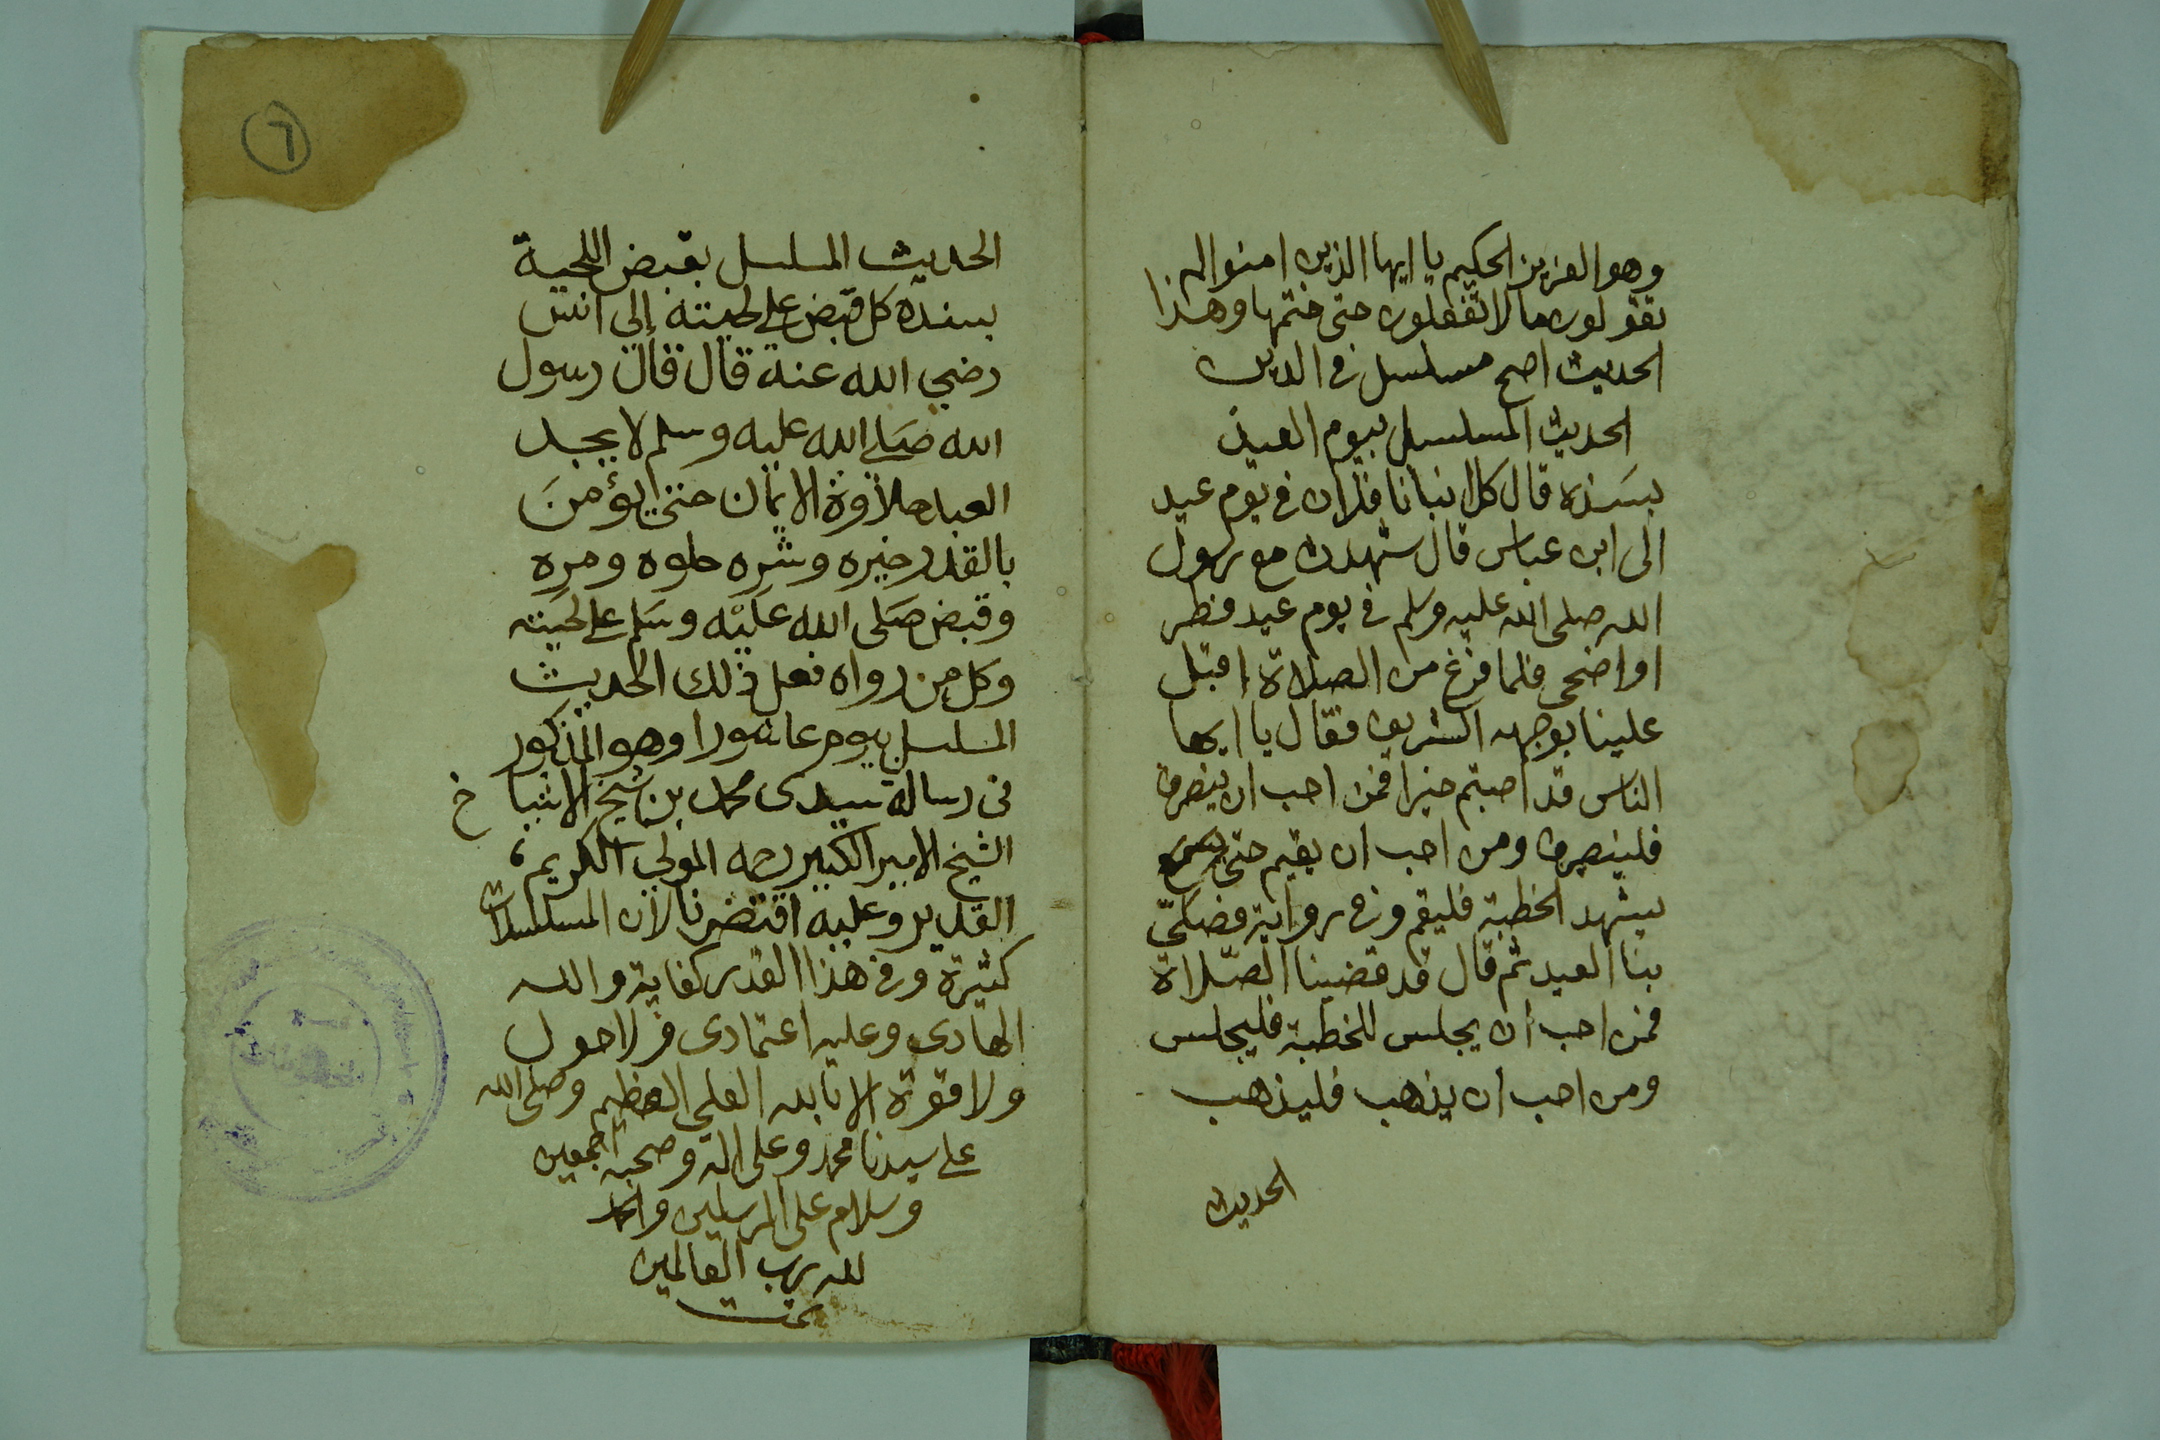 وهو العزيز الحكيم يا ايها الذين امنوا لم
تقولون ما لا تفعلون حتى ختمها وهذا
الحديث اصح مسلسل في الدين
الحديث المسلسل بيوم العيد
بسنده قال كل انبأنا فلان في يوم عيد
الى ابن عباس قال شهدت مع رسول
الله صلى الله عليه وسلم في يوم عيد فطر
او اضحى فلما فرغ من الصلاة اقبل
علينا بوجهه الشريف فقال يا ايها
الناس قد اصبتم خيرا فمن احب ان ينصرف
فلينصرف ومن احب ان يقيم حتى
يشهد الخطبة فليقم وفي رواية فصلى
بنا العيد ثم قال قد قضينا الصلاة
فمن احب ان يجلس للخطبة فليجلس
ومن احب ان يذهب فليذهب
الحديث
٦
الحديث المسلسل بقبض اللحية
بسنده كل قبض على لحيته إلى انس
رضي الله عنه قال قال رسول
الله صلى الله عليه وسلم لا يجد
العبد حلاوة الايمان حتى يؤمن
بالقدر خيره وشره حلوه ومره
وقبض صلى الله عليه وسلم على لحيته
وكل من رواه فعل ذلك الحديث
المسلسل بيوم عاشورا وهو المذكور
في رسالة سيدى محمد بن شيخ الاشياخ
الشيخ الامير الكبير رحمه المولى الكريم
القدير وعليه اقتصرنا لان المسلسلات
كثيرة وفي هذا القدر كفاية والله
الهادي وعليه اعتمادى ولا حول
ولا قوة الا بالله العلي العظيم وصلى الله
على سيدنا محمد وعلى اله وصحبه اجمعين
وسلام على المرسلين والحمد
لله رب العالمين
تمت